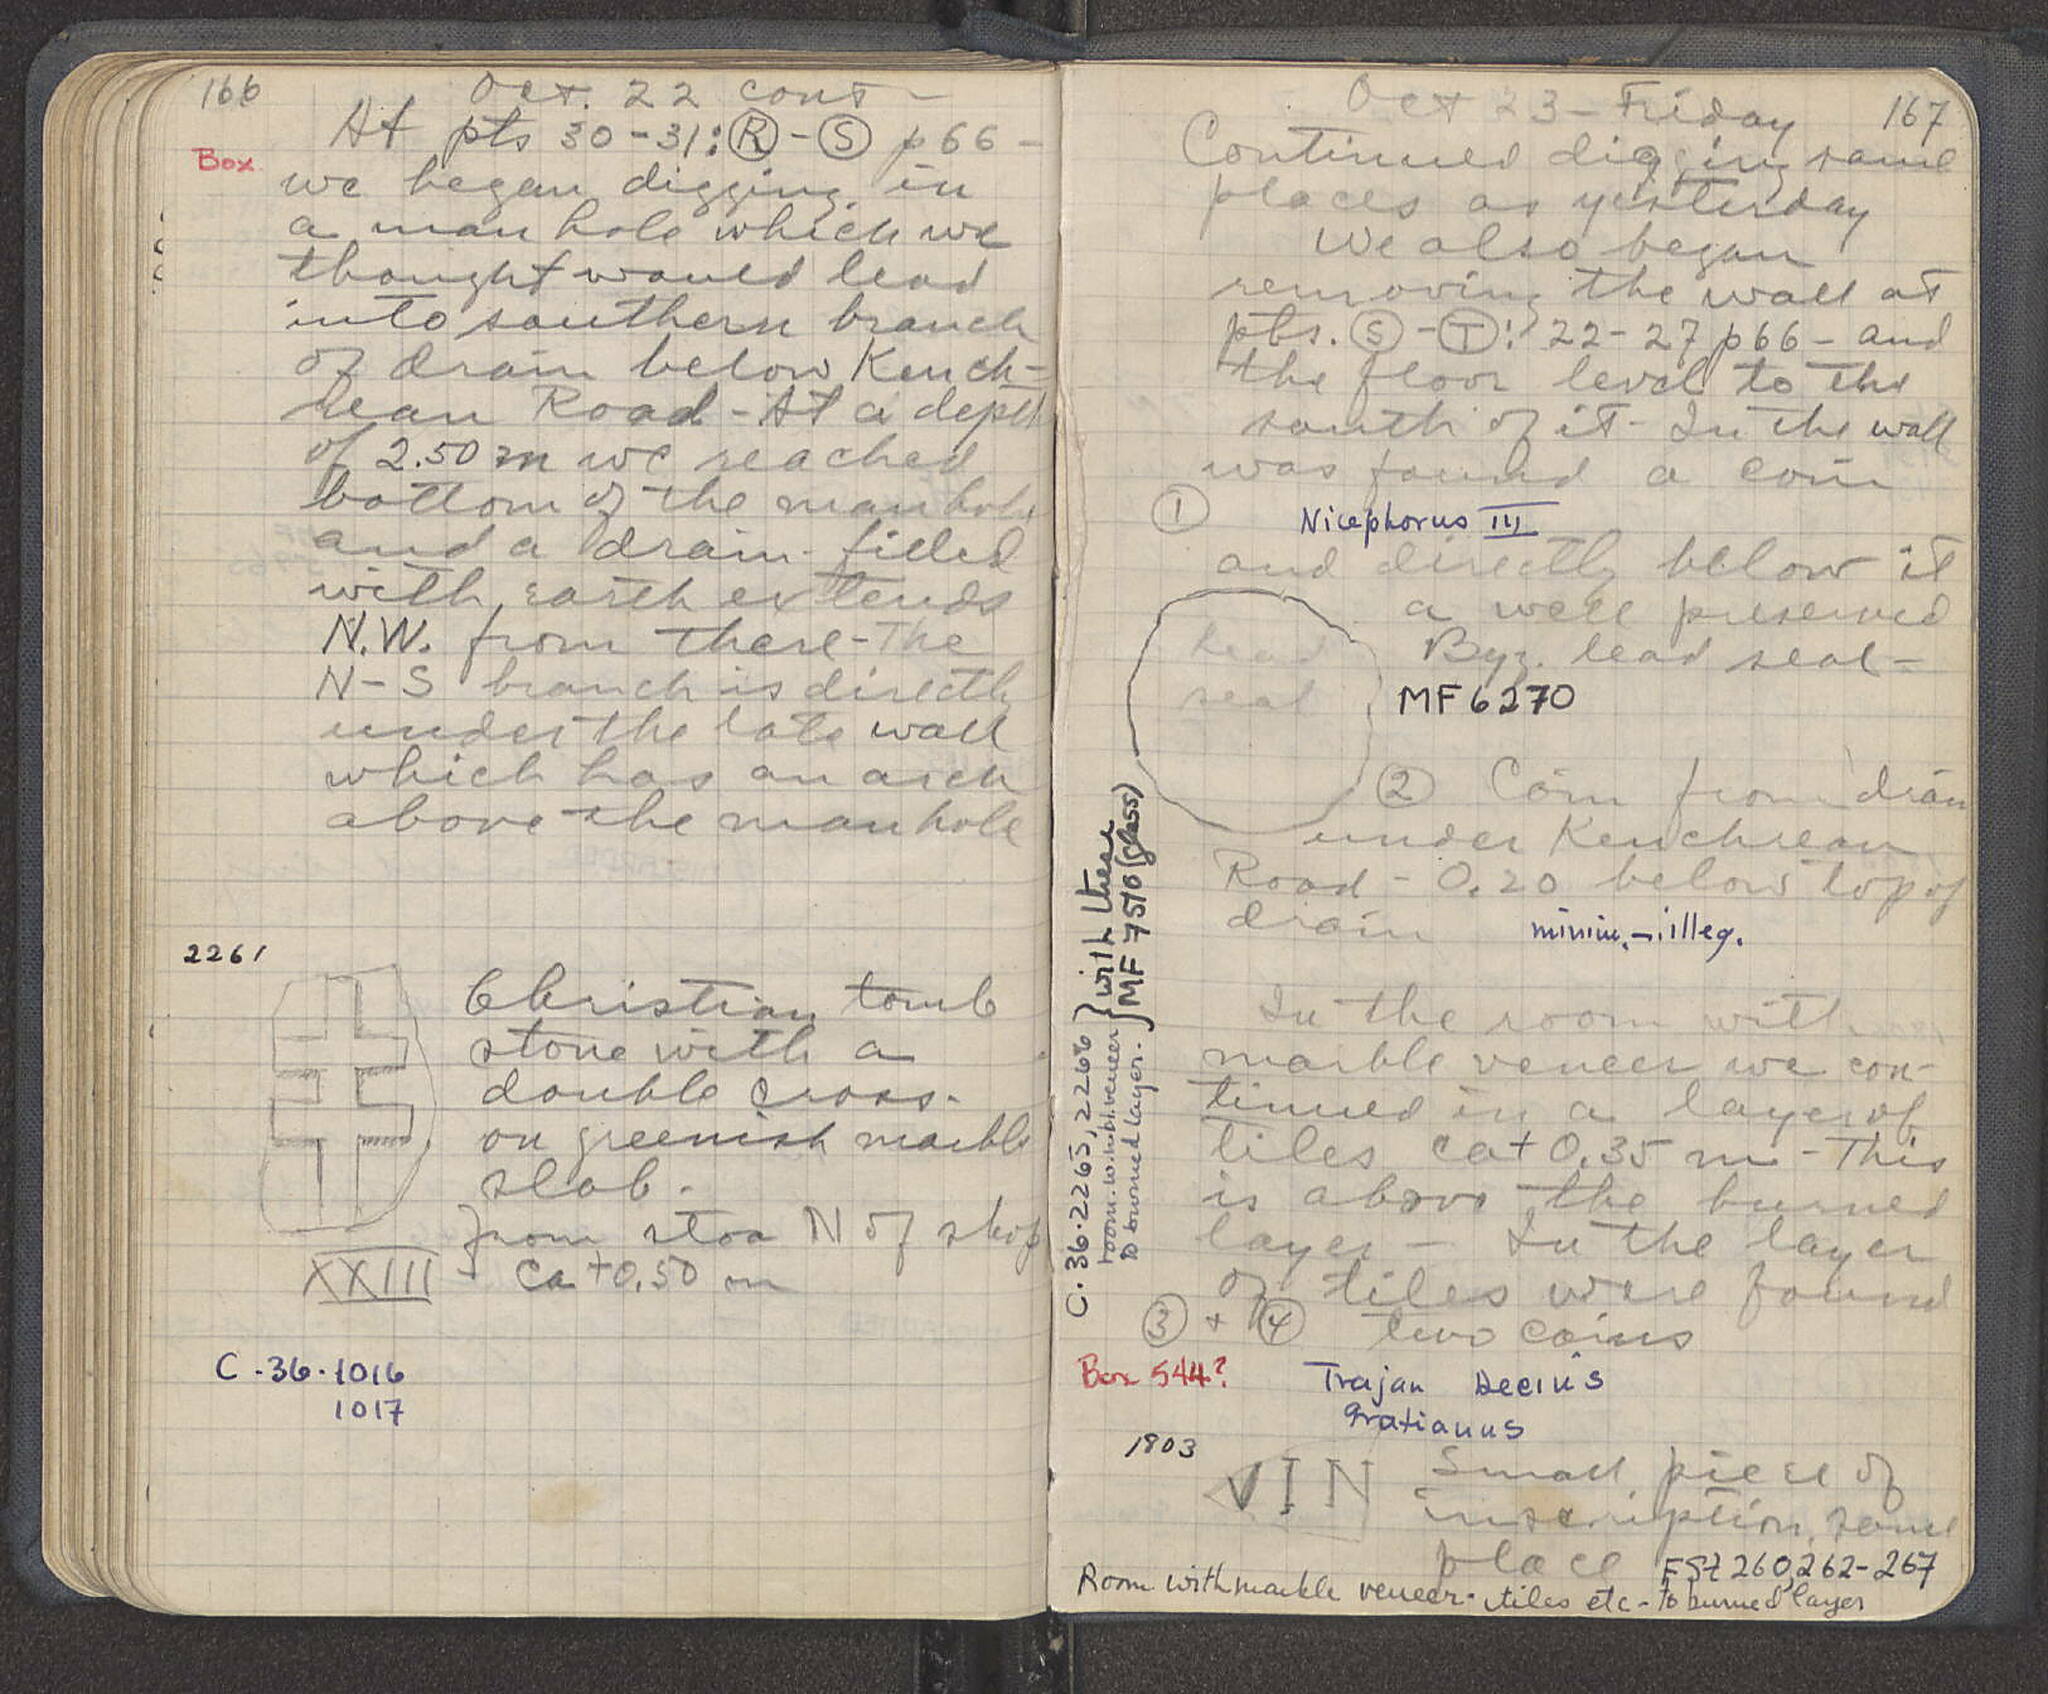 166
Oct. 22 cont –
At pts 30-31: R - S p 66 –
Box
we began digging in
a man hole which we
thought would lead
into southern branch
of drain below Kench-
rean Road - At a depth
of 2.50 m we reached
bottom of the man hole
and a drain filled
with earth extends
N.W. from there - The
N-S branch is directly
under the late wall
which has an arch
above the man hole
2261
Christian tomb
stone with a
double cross.
on greenish marble
slab.
from stoa N of shop
XXIII ca +0.50 m
C.36.1016
1017
Oct 23 - Friday 167
Continued digging same
places as yesterday
We also began
removing the wall at
pts. S - T: 22-27 p 66 – and
the floor level to the
south of it - In the wall
was found a coin
1 Nicephorus III
and directly below it
a well preserved
lead
seal
Byz. lead seal –
MF 6270
2 Coin from drain
under Kenchrean
Road - 0.20 below top of
drain minim. – illeg.
C.36.2265, 2266 } with these
room w. mbl. veneer } MF 7516 (glass)
to burned layer.
In the room with
marble veneer we con-
tinued in a layer of
tiles ca + 0.35 m - This
is above the burned
layer – In the layer
of tiles were found
3 + 4 two coins
Box 544?
Trajan Decius
Gratianus
1803
VIN Small piece of
inscription, same
place FSt 260, 262-267
Room with marble veneer - tiles etc - to burned layer